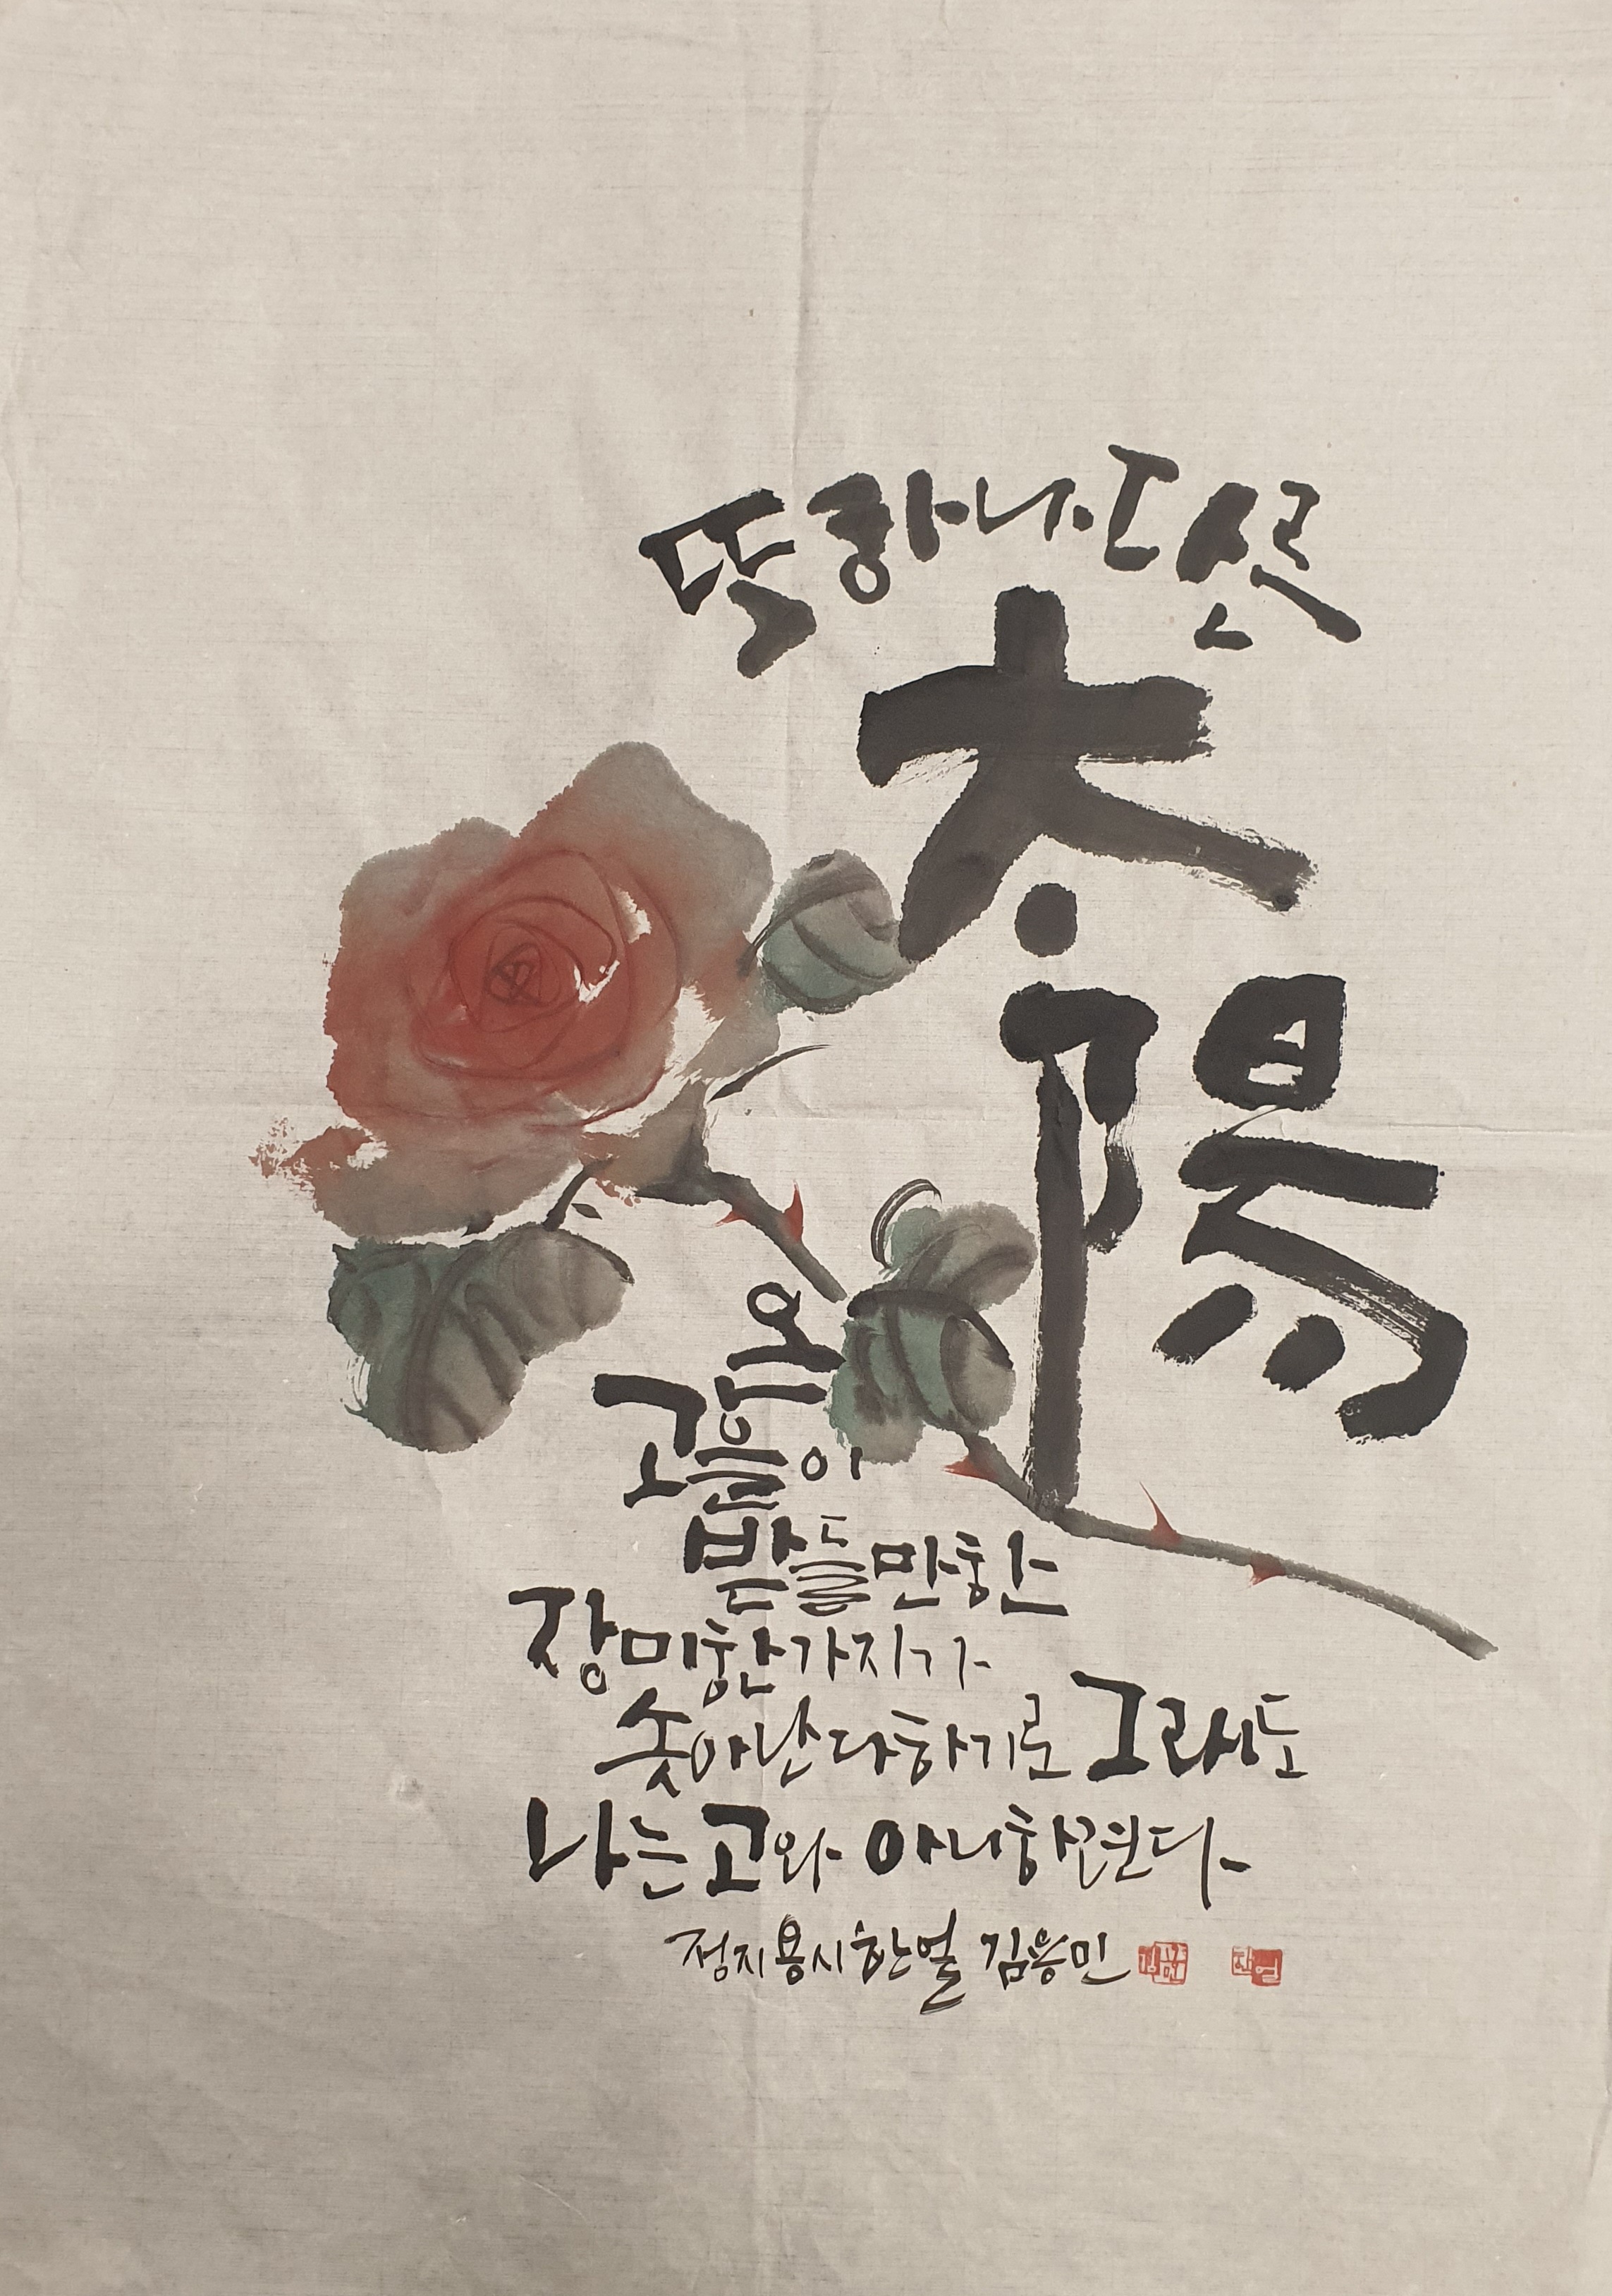 또하나다른
太陽
온
고을이
받들만한
장미한가지가
솟아난다하기로 그래도
나는고와 아니하련다
정지용시한얼 김용민
한얼